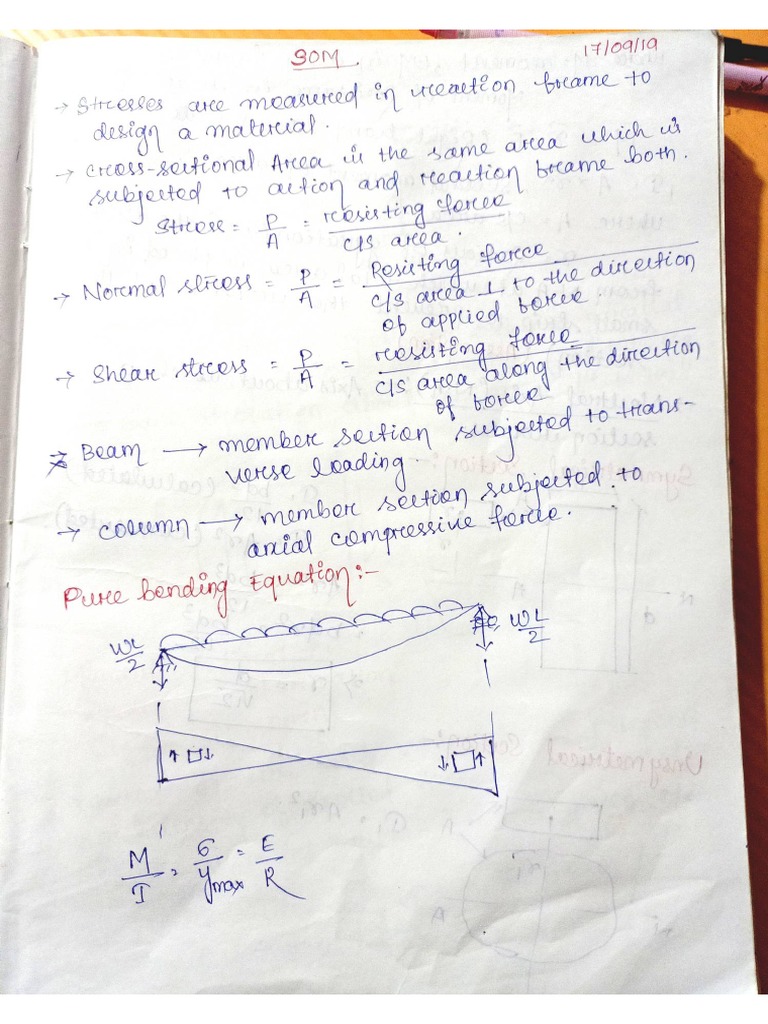 SOM
17/09/19
→ Stresses are measured in reaction frame to
design a material.
→ cross-sectional Area is the same area which is
subjected to action and reaction frame both.
Stress = P/A = resisting force / c/s area.
→ Normal stress = P/A = Resisting force / c/s area ⊥ to the direction
of applied force.
→ Shear stress = P/A = resisting force / c/s area along the direction
of force
→ Beam → member section subjected to trans-
verse loading.
→ column → member section subjected to
axial compressive force.
Pure bending Equation:-
WL/2
WL/2
M/I = σ/ymax = E/R